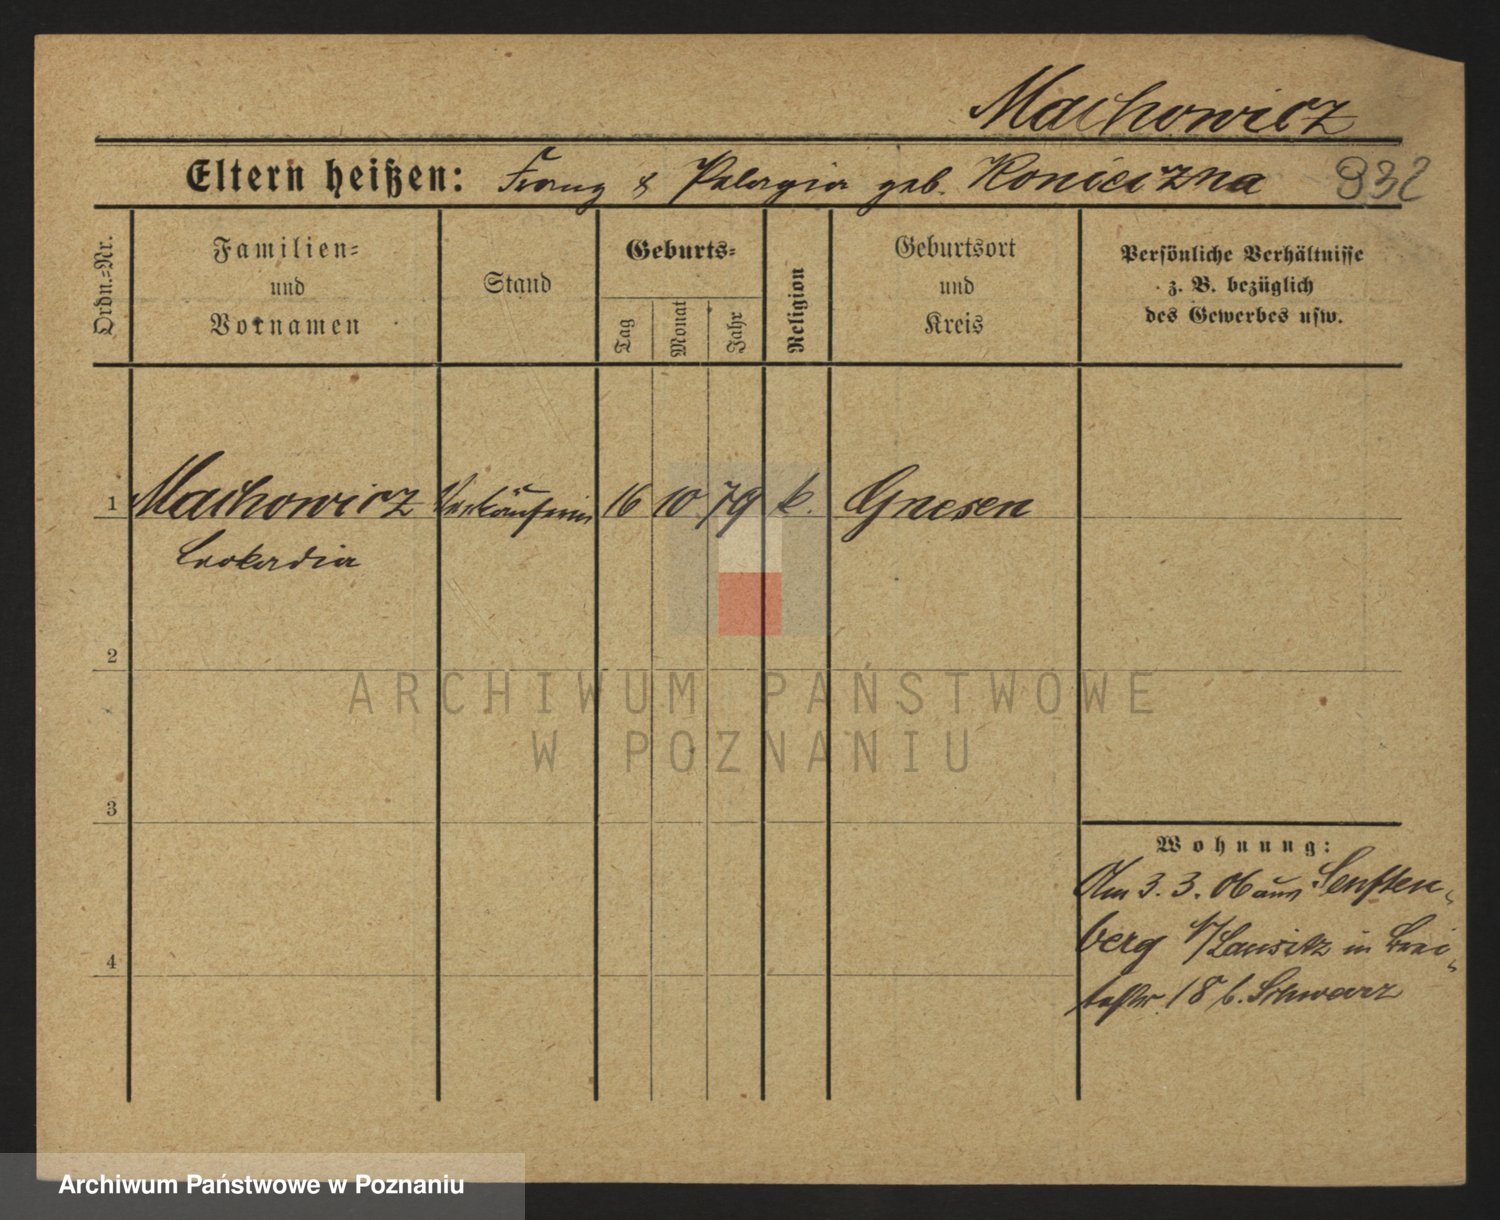 Machowicz
Eltern heißen: Franz & Pelagia geb. Konieczna 932
Ordn.-Nr.
Familien-
und
Vornamen
Stand
Geburts-
Tag
Monat
Jahr
Religion
Geburtsort
und
Kreis
Persönliche Verhältnisse
z. B. bezüglich
des Gewerbes usw.
1 Machowicz Verkäuferin 16 10 79 k. Gnesen
Leokadia
2
ARCHIWUM PAŃSTWOWE
W POZNANIU
3
Wohnung:
Am 3. 3. 06 aus Senften-
berg N/Lausitz in Brei-
testr. 18 b. Schwarz
4
Archiwum Państwowe w Poznaniu